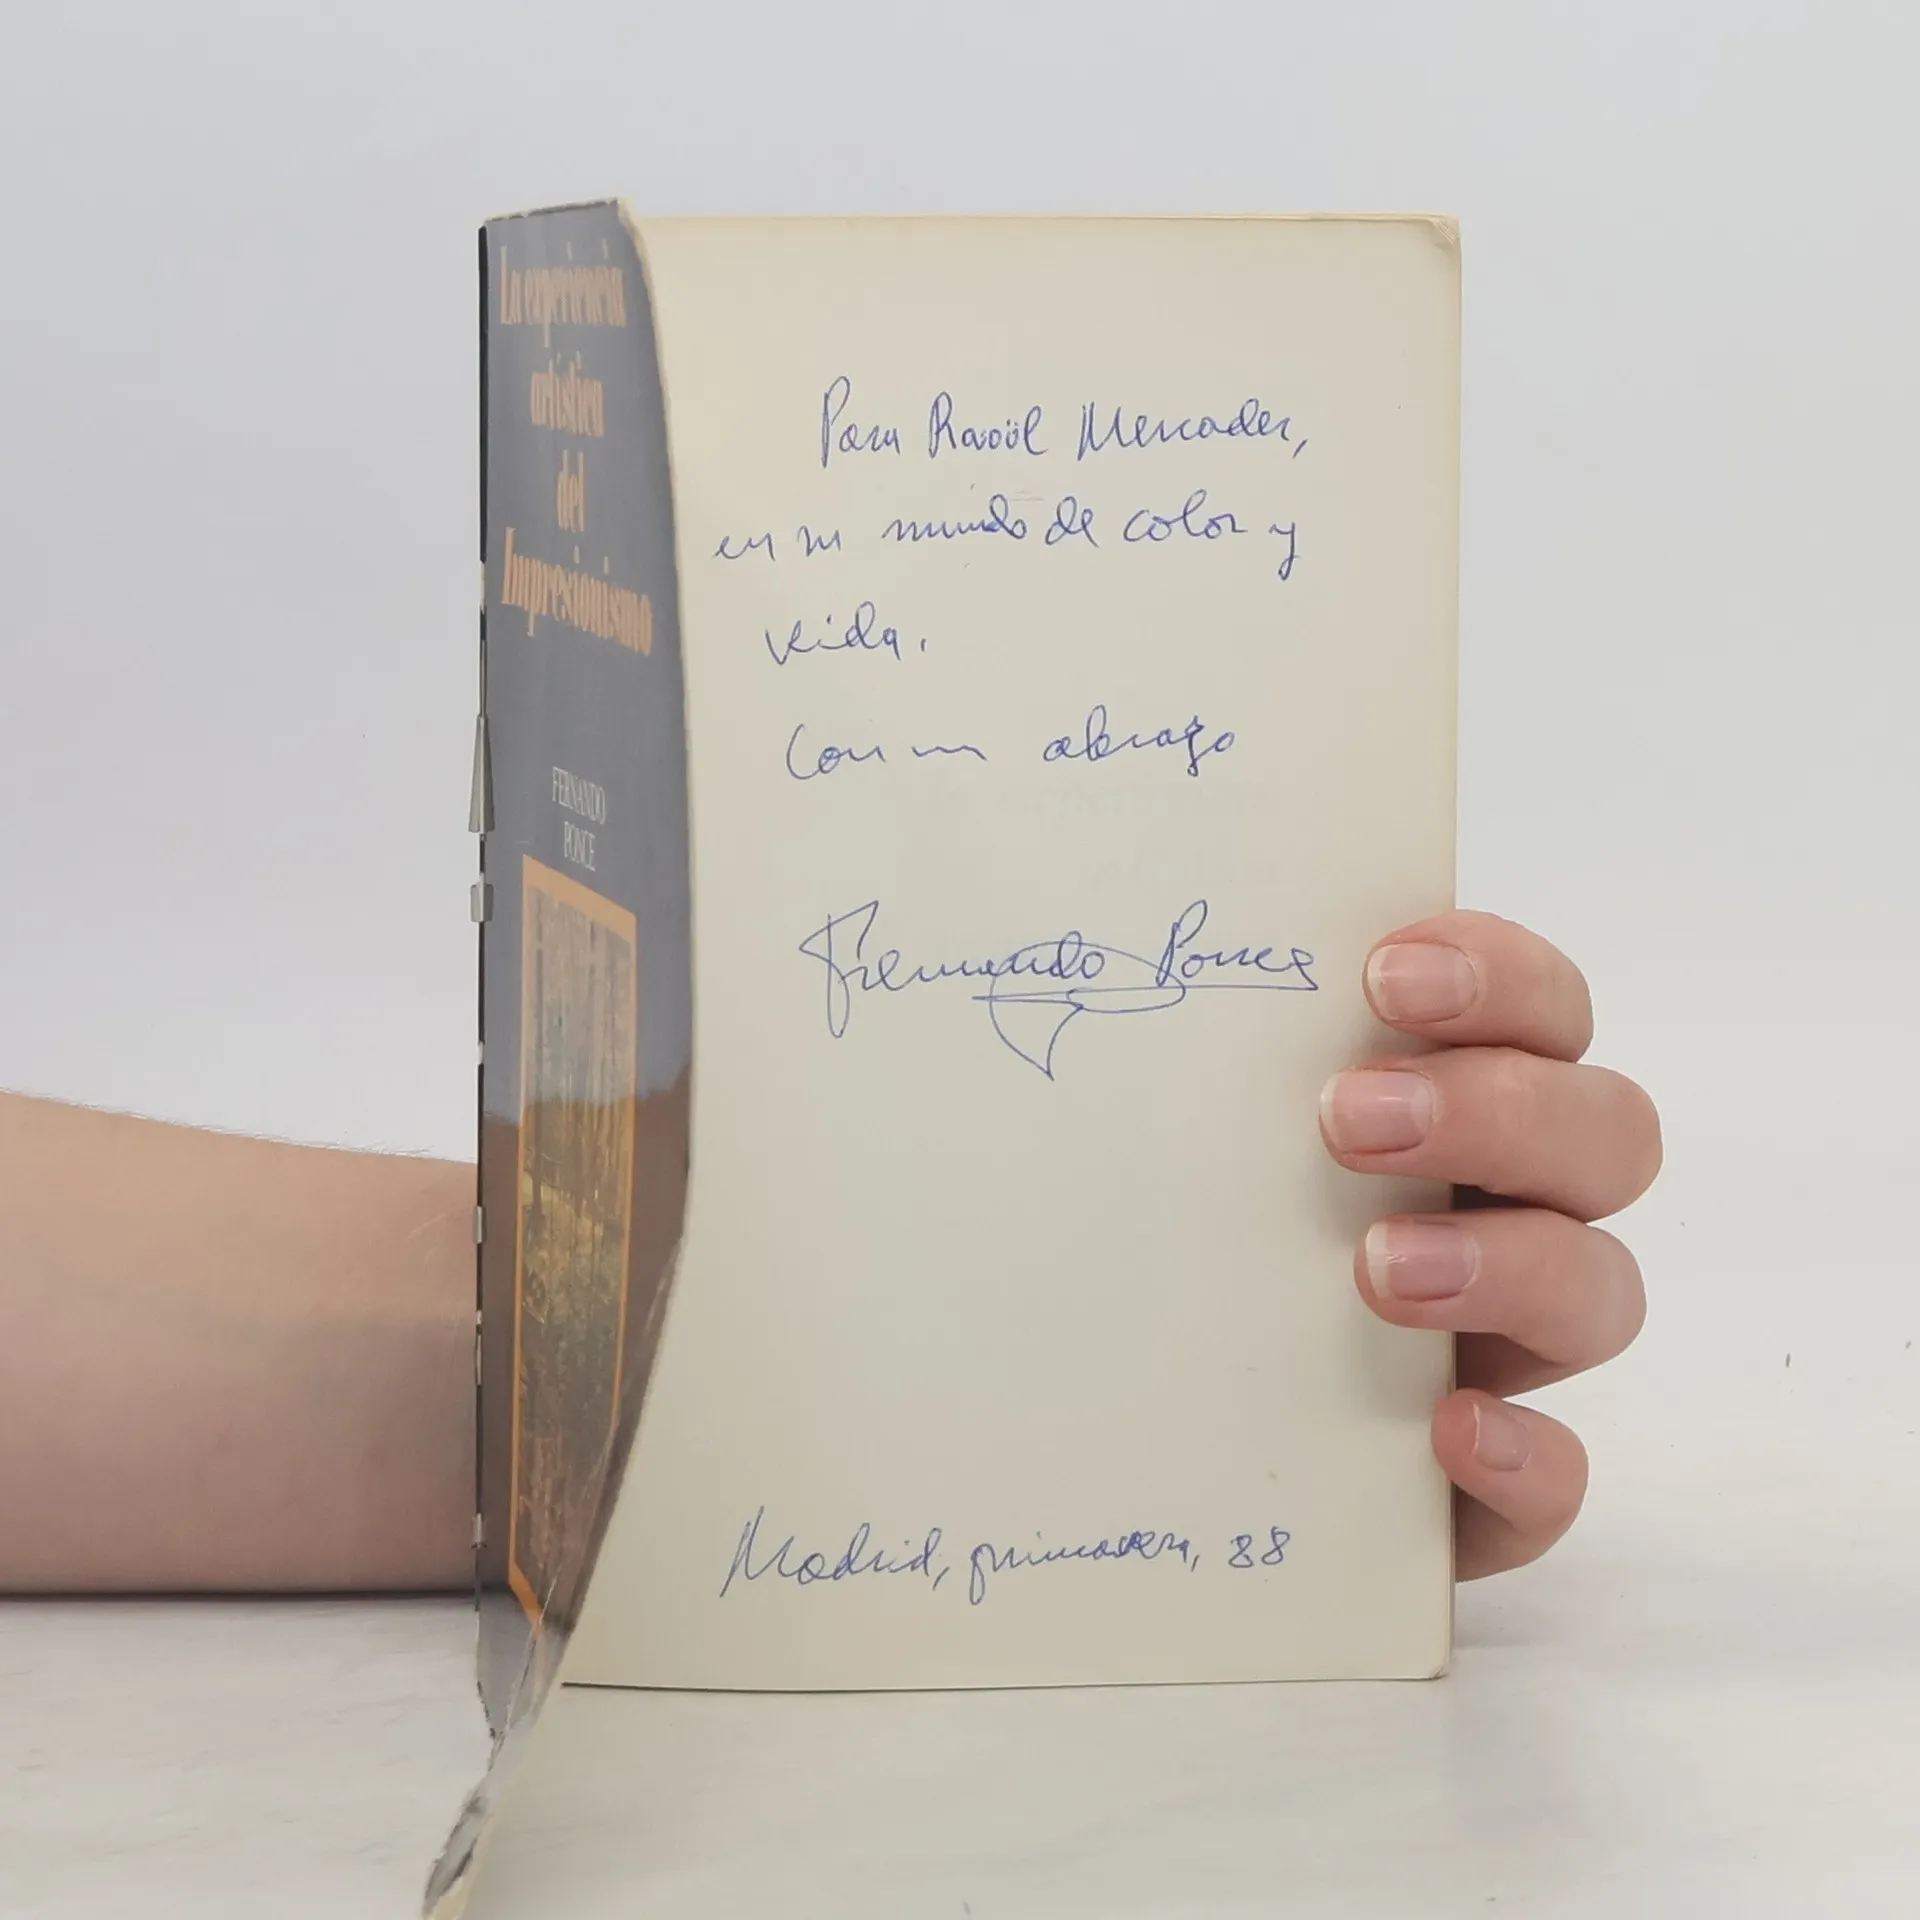 La experiencia
artística
del
Impresionismo
FERNANDO
PONCE
Para Raoül Mercader,
en su mundo de color y
vida.
Con un abrazo
Fernando Ponce
Madrid, primavera, 88